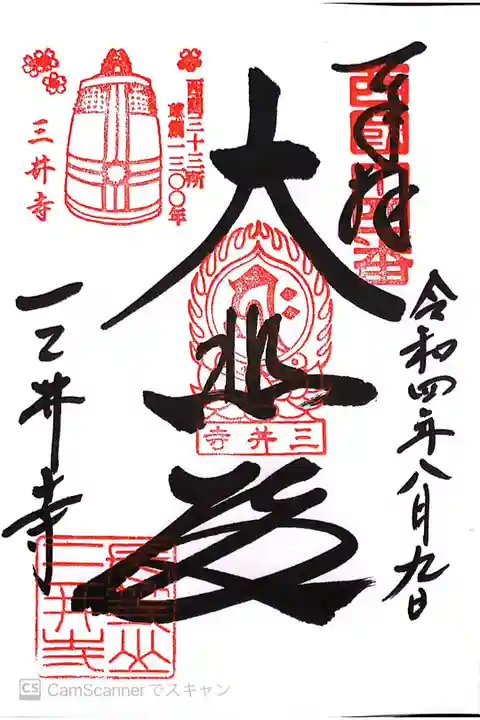 奉拝
令和四年八月九日
大悲殿
三井寺
西国三十三所
草創一三〇〇年
三井寺
三井寺
三井寺
CS CamScannerでスキャン